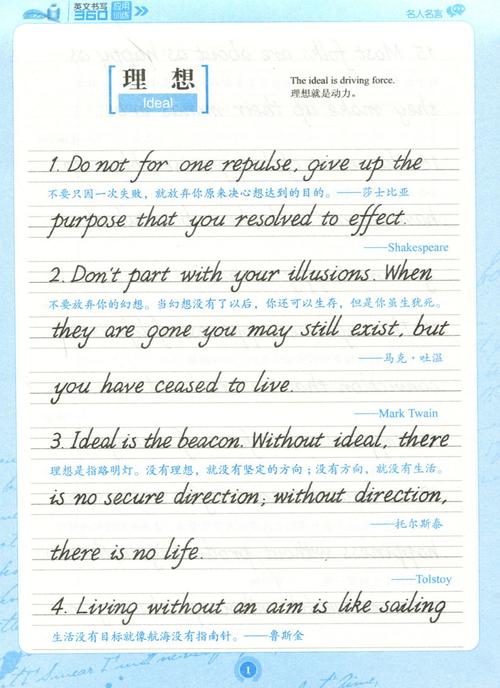 英文书写
360
应用
训练
名人名言
理 想
Ideal
The ideal is driving force.
理想就是动力。
1. Do not for one repulse, give up the
不要只因一次失败，就放弃你原来决心想达到的目的。——莎士比亚
purpose that you resolved to effect.
——Shakespeare
2. Don't part with your illusions. When
不要放弃你的幻想。当幻想没有了以后，你还可以生存，但是你虽生犹死。
they are gone you may still exist, but
——马克·吐温
you have ceased to live.
——Mark Twain
3. Ideal is the beacon. Without ideal, there
理想是指路明灯。没有理想，就没有坚定的方向；没有方向，就没有生活。
is no secure direction; without direction,
——托尔斯泰
there is no life.
——Tolstoy
4. Living without an aim is like sailing
生活没有目标就像航海没有指南针。——鲁斯金
1